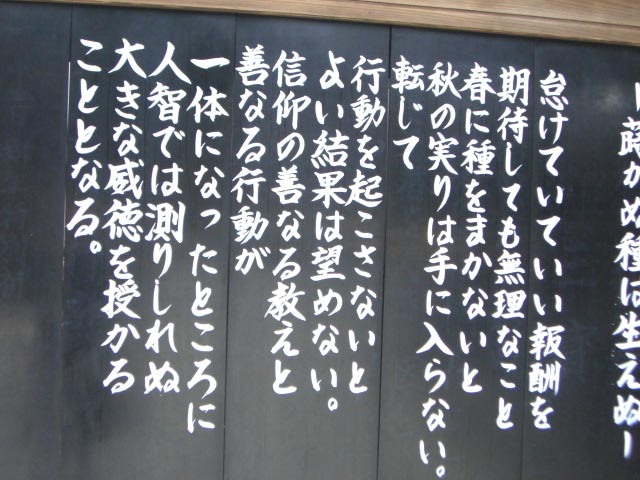 蒔かぬ種は生えぬ
怠けていていい報酬を
期待しても無理なこと
春に種をまかないと
秋の実りは手に入らない。
転じて
行動を起こさないと
よい結果は望めない。
信仰の善なる教えと
善なる行動が
一体になったところに
人智では測りしれぬ
大きな感徳を授かる
こととなる。